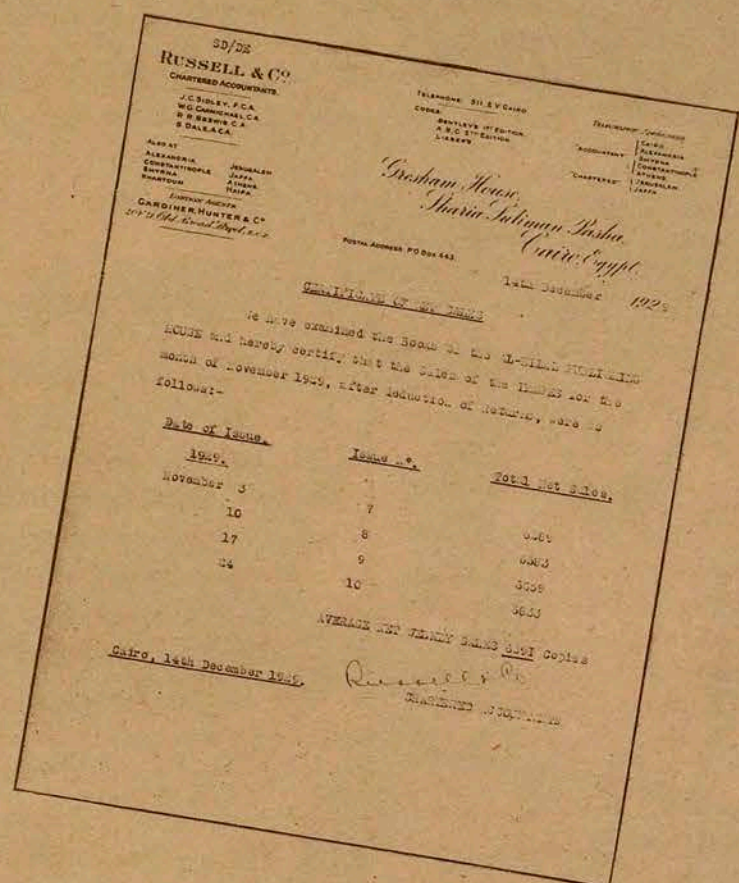 SD/DE
RUSSELL & Co.
CHARTERED ACCOUNTANTS.
J.C. SIDLEY, F.C.A.
W.G. CARMICHAEL, C.A.
D.R. BESWIE, C.A.
S. DALE, A.C.A.
ALSO AT
ALEXANDRIA
CONSTANTINOPLE
SMYRNA
KHARTOUM
JERUSALEM
JAFFA
ATHENS
HAIFA
LONDON AGENTS
GARDINER, HUNTER & Co.
Old Broad Street, E.C.2.
TELEPHONE: 511 & V CAIRO
CODES:
BENTLEY'S 1ST EDITION
A.B.C. 5TH EDITION
LIEBER'S
TELEGRAPHIC ADDRESSES
"ACCOUNTANT"
CAIRO
ALEXANDRIA
SMYRNA
CONSTANTINOPLE
ATHENS
"CHARTERED"
JERUSALEM
JAFFA
Gresham House,
Sharia Suliman Pasha,
Cairo, Egypt.
POSTAL ADDRESS: P.O. BOX 443.
14th December 1929
CERTIFICATE OF NET SALES
We have examined the Books of the AL-HILAL PUBLISHING
HOUSE and hereby certify that the Sales of the for the
month of November 1929, after deduction of Returns, were as
follows:-
Date of Issue. Issue No. Total Net Sales.
1929.
November 3 7
10 8
17 9
24 10
AVERAGE NET WEEKLY SALES Copies
Cairo, 14th December 1929.
Russell & Co
CHARTERED ACCOUNTANTS